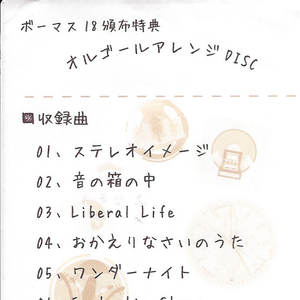 ボーマス18頒布特典
オルゴールアレンジDISC
収録曲
01、ステレオイメージ
02、音の箱の中
03、Liberal Life
04、おかえりなさいのうた
05、ワンダーナイト